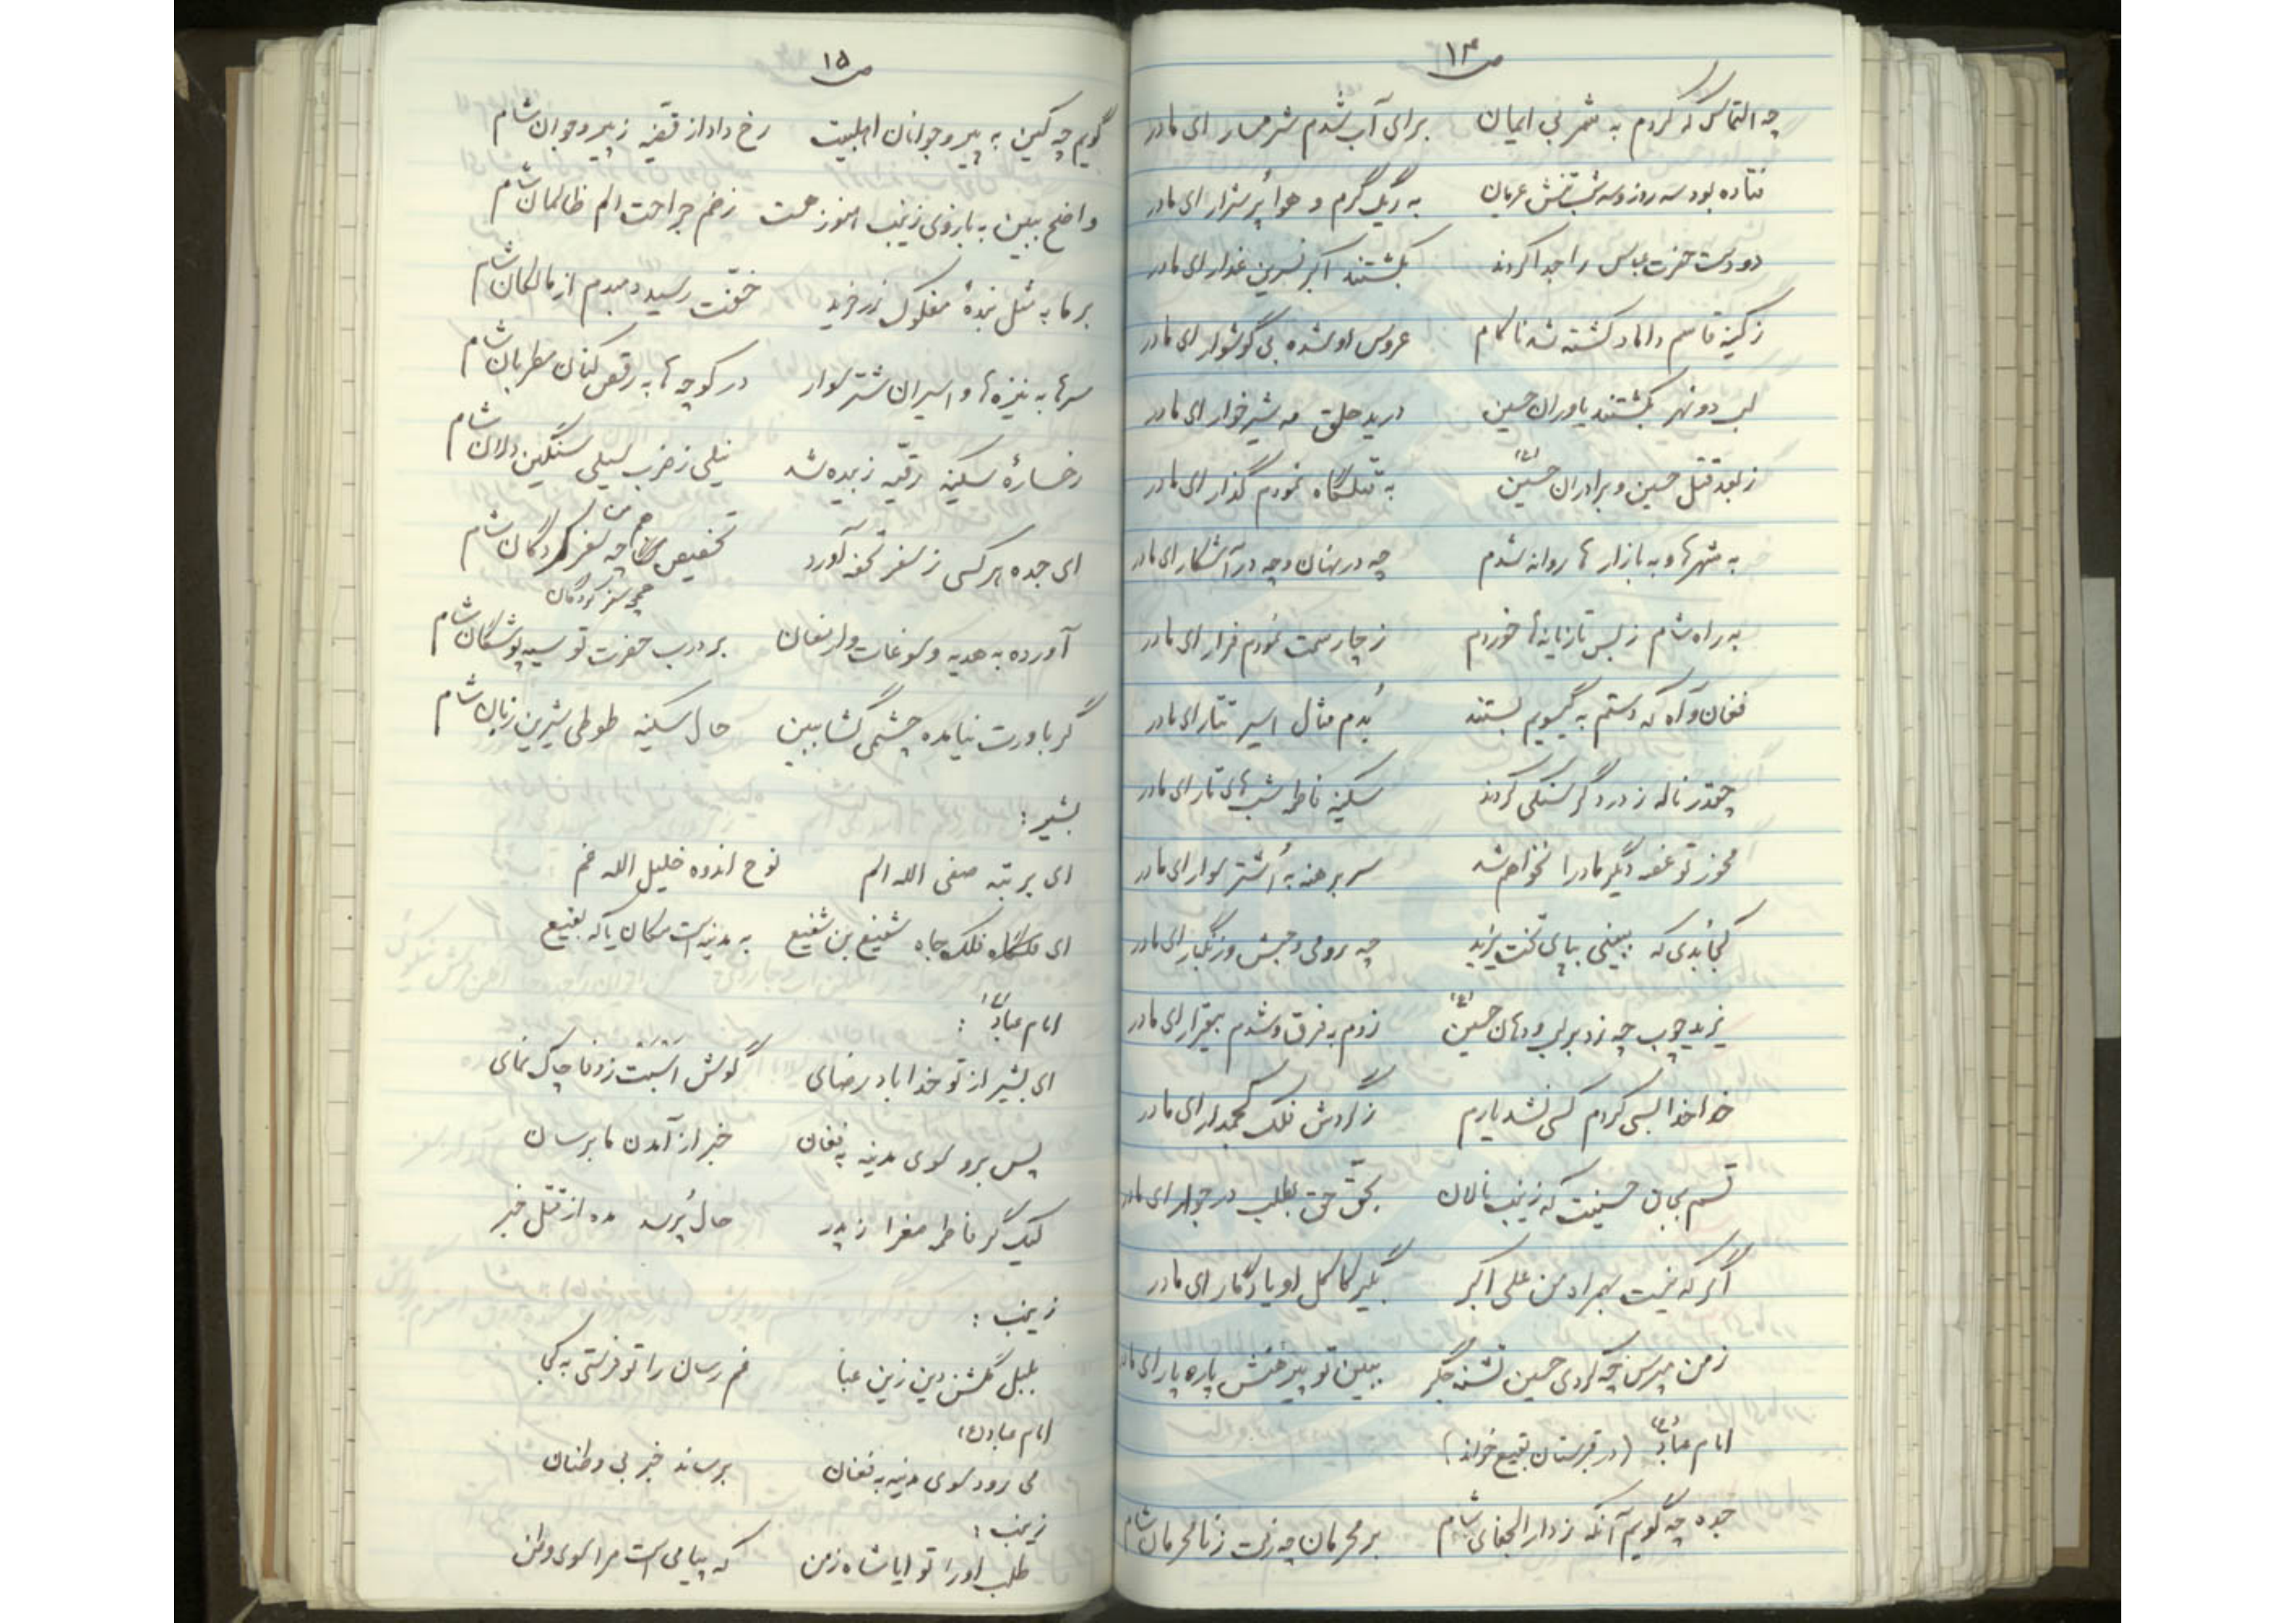 ص۱۴
چه التماس که کردم به شمر بی ایمان برای آب شدم شرمسار ای مادر
فتاده بود سه روز و سه شب تنش عریان به ریگ گرم و هوا پُر شرار ای مادر
دو دست حضرت عباس را جدا کردند بکشتند اکبر نسرین عذار ای مادر
ز کینه قاسم داماد کشته شد ناکام عروس او شده بی گوشوار ای مادر
لب دو نهر بکشتند یاوران حسین درید حلق مه شیرخوار ای مادر
ز بعد قتل حسین و برادران حسین (ع) به قتلگاه نمودم گذار ای مادر
به شهرها و به بازارها روانه شدم چه در نهان و چه در آشکار ای مادر
به راه شام ز بس تازیانه‌ها خوردم ز چار سمت نمودم فرار ای مادر
فغان و آه که دستم به گیسویم بستند بُدم مثال اسیر تتار ای مادر
چقدر ناله ز درد گرسنگی کردند سکینه فاطمه شب‌های تار ای مادر
مخور تو غصه دیگر مادرا نخواهم شد سر برهنه به اُشتر سوار ای مادر
کجا بُدی که ببینی بپای تخت یزید چه رومی و حبش و زنگبار ای مادر
یزید چوب چه زد بر لب و دهان حسین (ع) زدم به فرق و شدم بیقرار ای مادر
خدا خدا بسی کردم کسی نشد یارم ز گردش فلک کجمدار ای مادر
قسم بجان حسینت که زینب نالان بحقّ حق بطلب در جوار ای مادر
اگر که نیست بهمراه من علی اکبر بگیر کاکل او یادگار ای مادر
ز من مپرس چه کردی حسین تشنه جگر ببین تو پیرهنش پاره پار ای مادر
امام عباد (ع) (در قبرستان بقیع خواند)
جده چه گویم آنکه ز دار الجفای شام بر محرمان چه رفت ز نامحرمان شام
ص۱۵
گویم چه کین به پیر و جوانان اهلبیت رخ داد از قضیه ز پیر و جوان شام
واضح ببین به بازوی زینب هنوز هست زخم جراحت الم ظالمان شام
بر ما به مثل بندهٔ مفلوک زرخرید خفّت رسید دمبدم از مالکان شام
سرها به نیزه‌ها و اسیران شتر سوار در کوچه‌ها به رقص کنان مطربان شام
رخسارهٔ سکینه رقیّه زبیده شد نیلی ز ضرب سیلی سنگین دلان شام
ای جده هر کسی ز سفر تحفه آورد تخصیص چه سفر کردگان شام
سفر کردگان
آورده به هدیه و سوغات و ارمغان بر درب حضرت تو سیه پوشگان شام
گر باورت نیامده چشمی گشا ببین حال سکینه طوطی شیرین زبان شام
بشیر :
ای برتبه صفی الله الم نوح اندوه خلیل الله غم
ای فلک جاه شفیع بن شفیع به مدینه است مکان یا که بقیع
امام عباد (ع) :
ای بشیر از تو خدا باد رضای گوش اسبت ز وفا چاک نمای
پس برو سوی مدینه به فغان خبر از آمدن ما برسان
لیک گر فاطمه صغرا ز پدر حال پُرسد مده از قتل خبر
زینب :
بلبل گلشن دین زین عبا غم رسان را تو فرستی به کجا
امام عباد (ع)
می رود سوی مدینه به فغان برساند خبر بی وطنان
زینب :
طلب او را تو ایا شاه زمن که پیامی است مرا سوی وطن